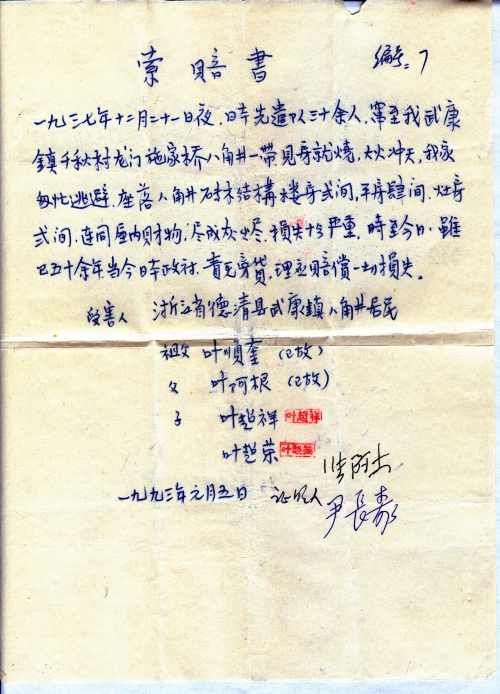 索赔書
编号:7
一九三七年十二月二十一日夜,日本先遣队三十余人,窜至我武康
鎮千秋村龙门施家桥八角井一带见房就烧,大火冲天,我家
匆忙逃避,座落八角井砖木结構楼房弍间,平房肆间,灶房
弍间,连同屋内财物,尽成灰烬,損失十分严重,時至今日,虽
已五十余年当今日本政府,責无旁貸,理应賠償一切損失。
受害人 浙江省德清县武康鎮八角井居民
祖父 叶順奎(已故)
父 叶阿根(已故)
子 叶超祥 叶超祥
叶超荣 叶超荣
一九九三年元月五日 证明人
尹長泰